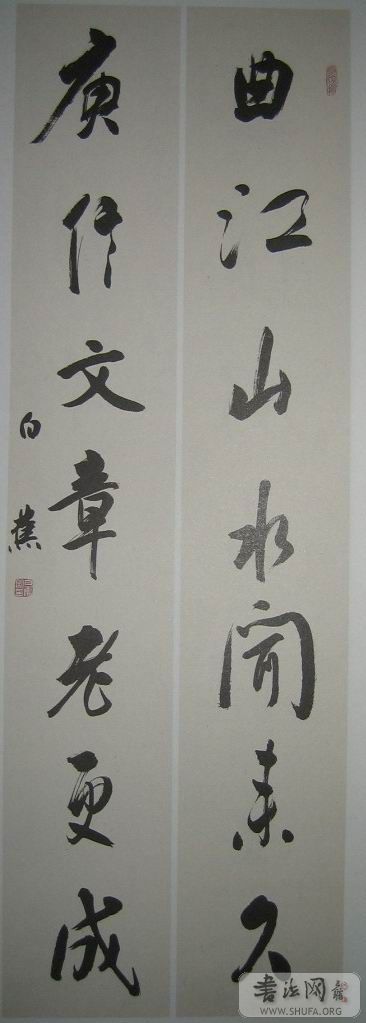 曲江山水闻来久
庾信文章老更成
白蕉
書法网
WWW.SHUFA.ORG